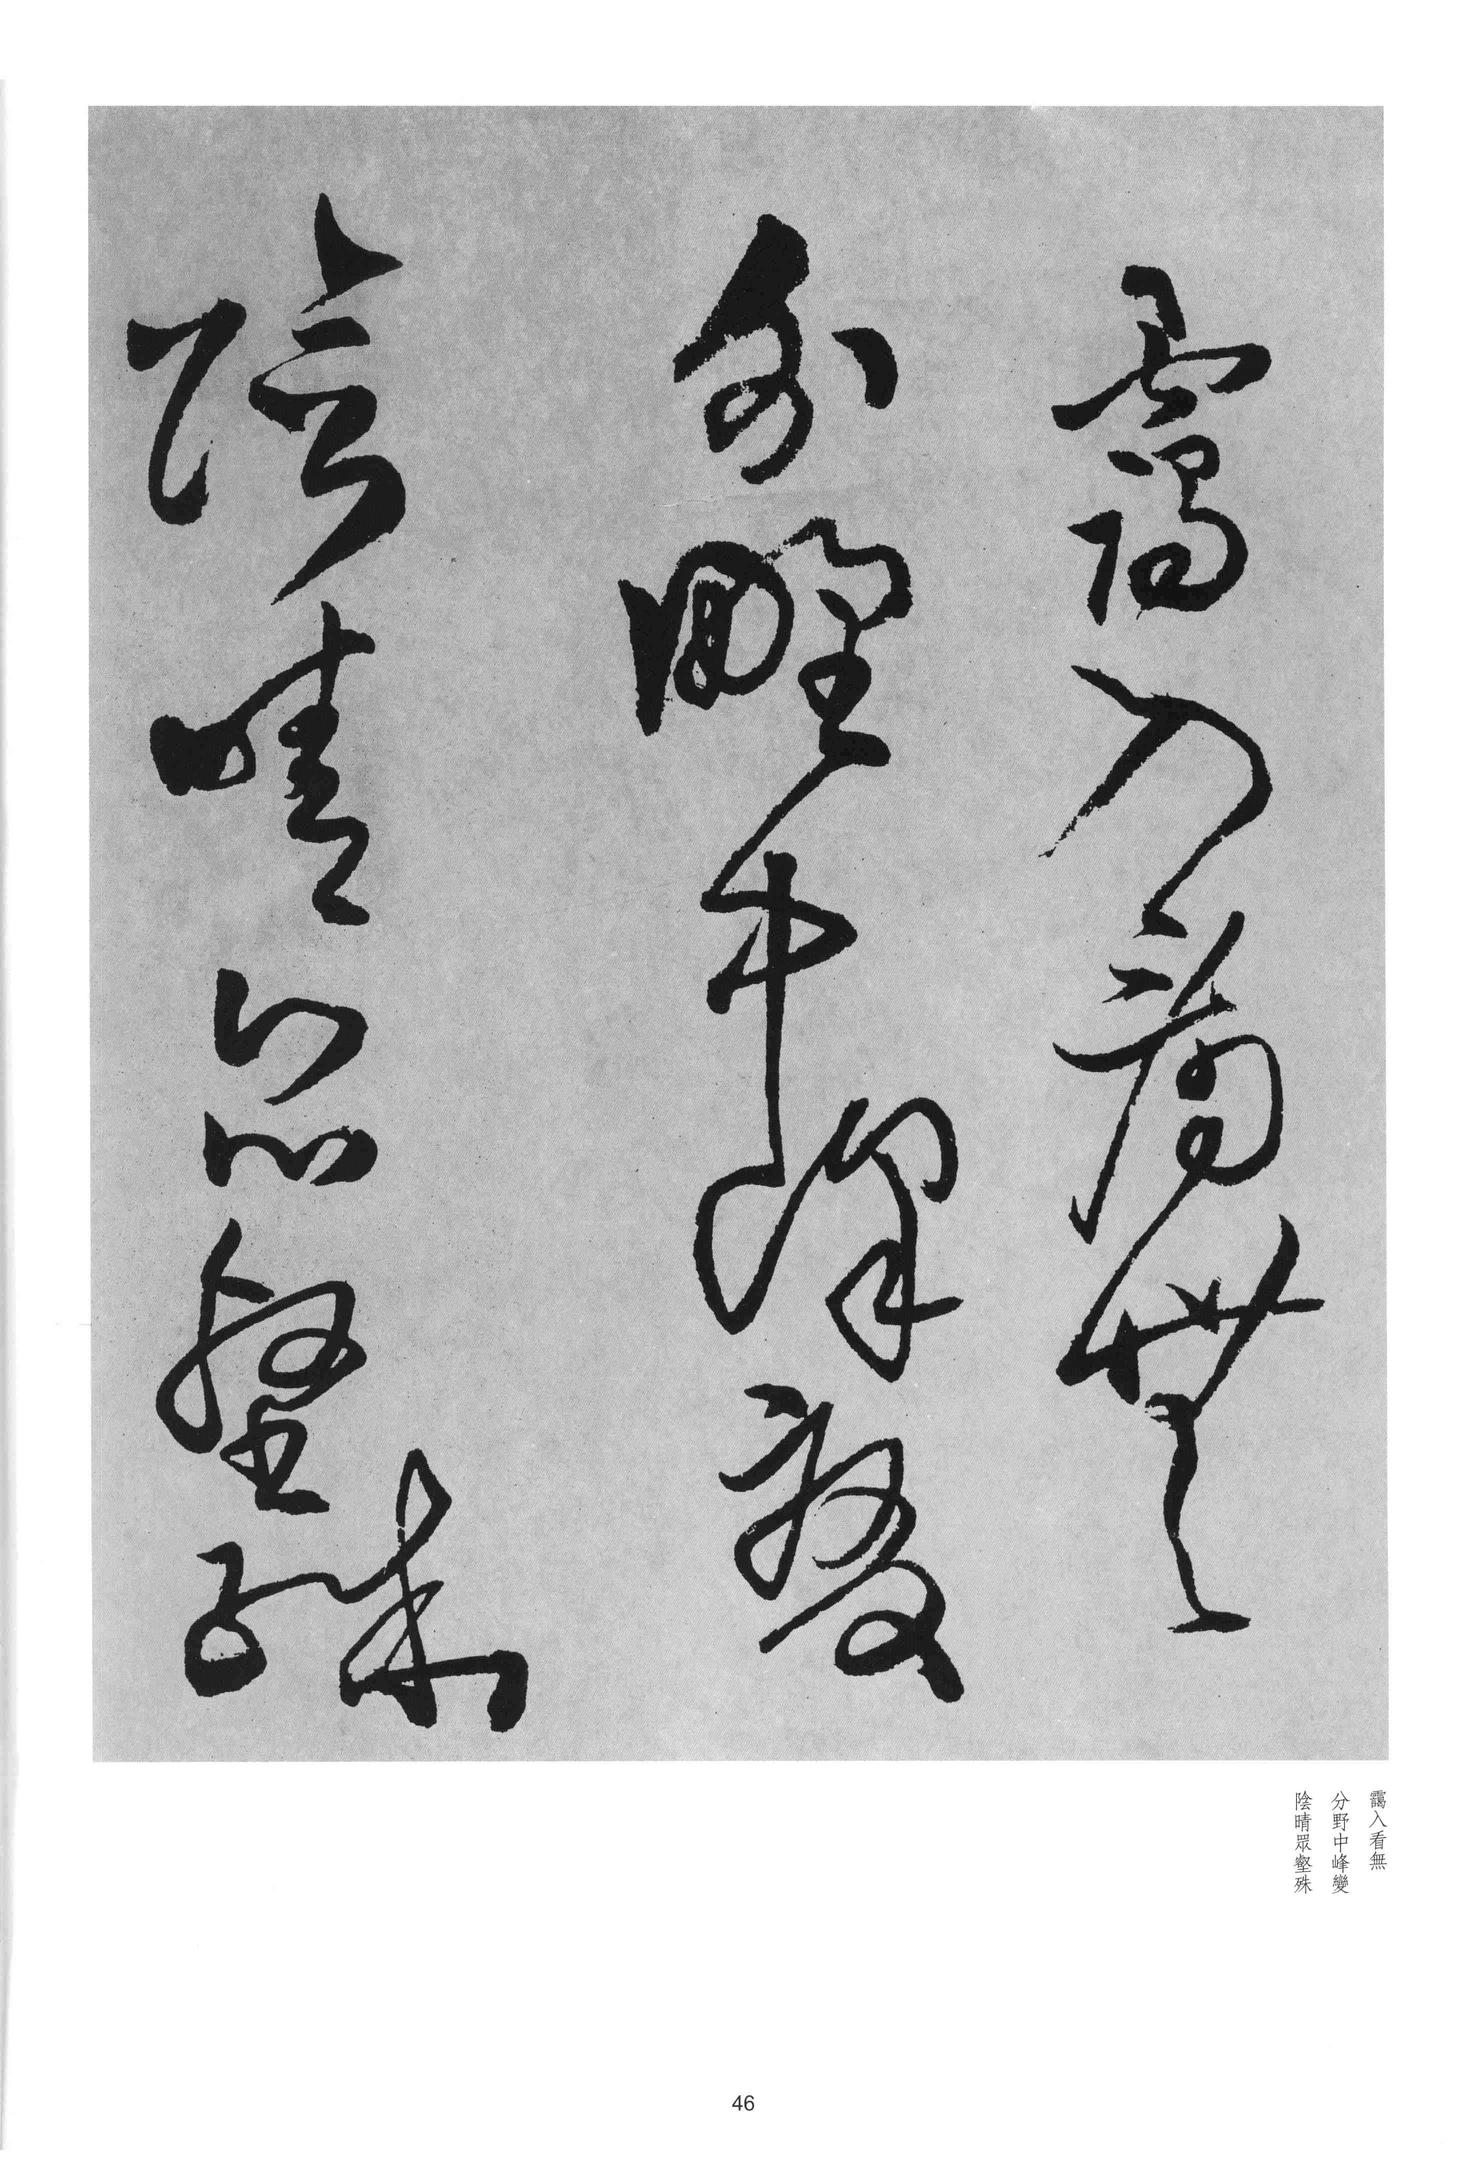 靄入看無
分野中峰變
陰晴眾壑殊
靄入看無
分野中峰變
陰晴眾壑殊
46